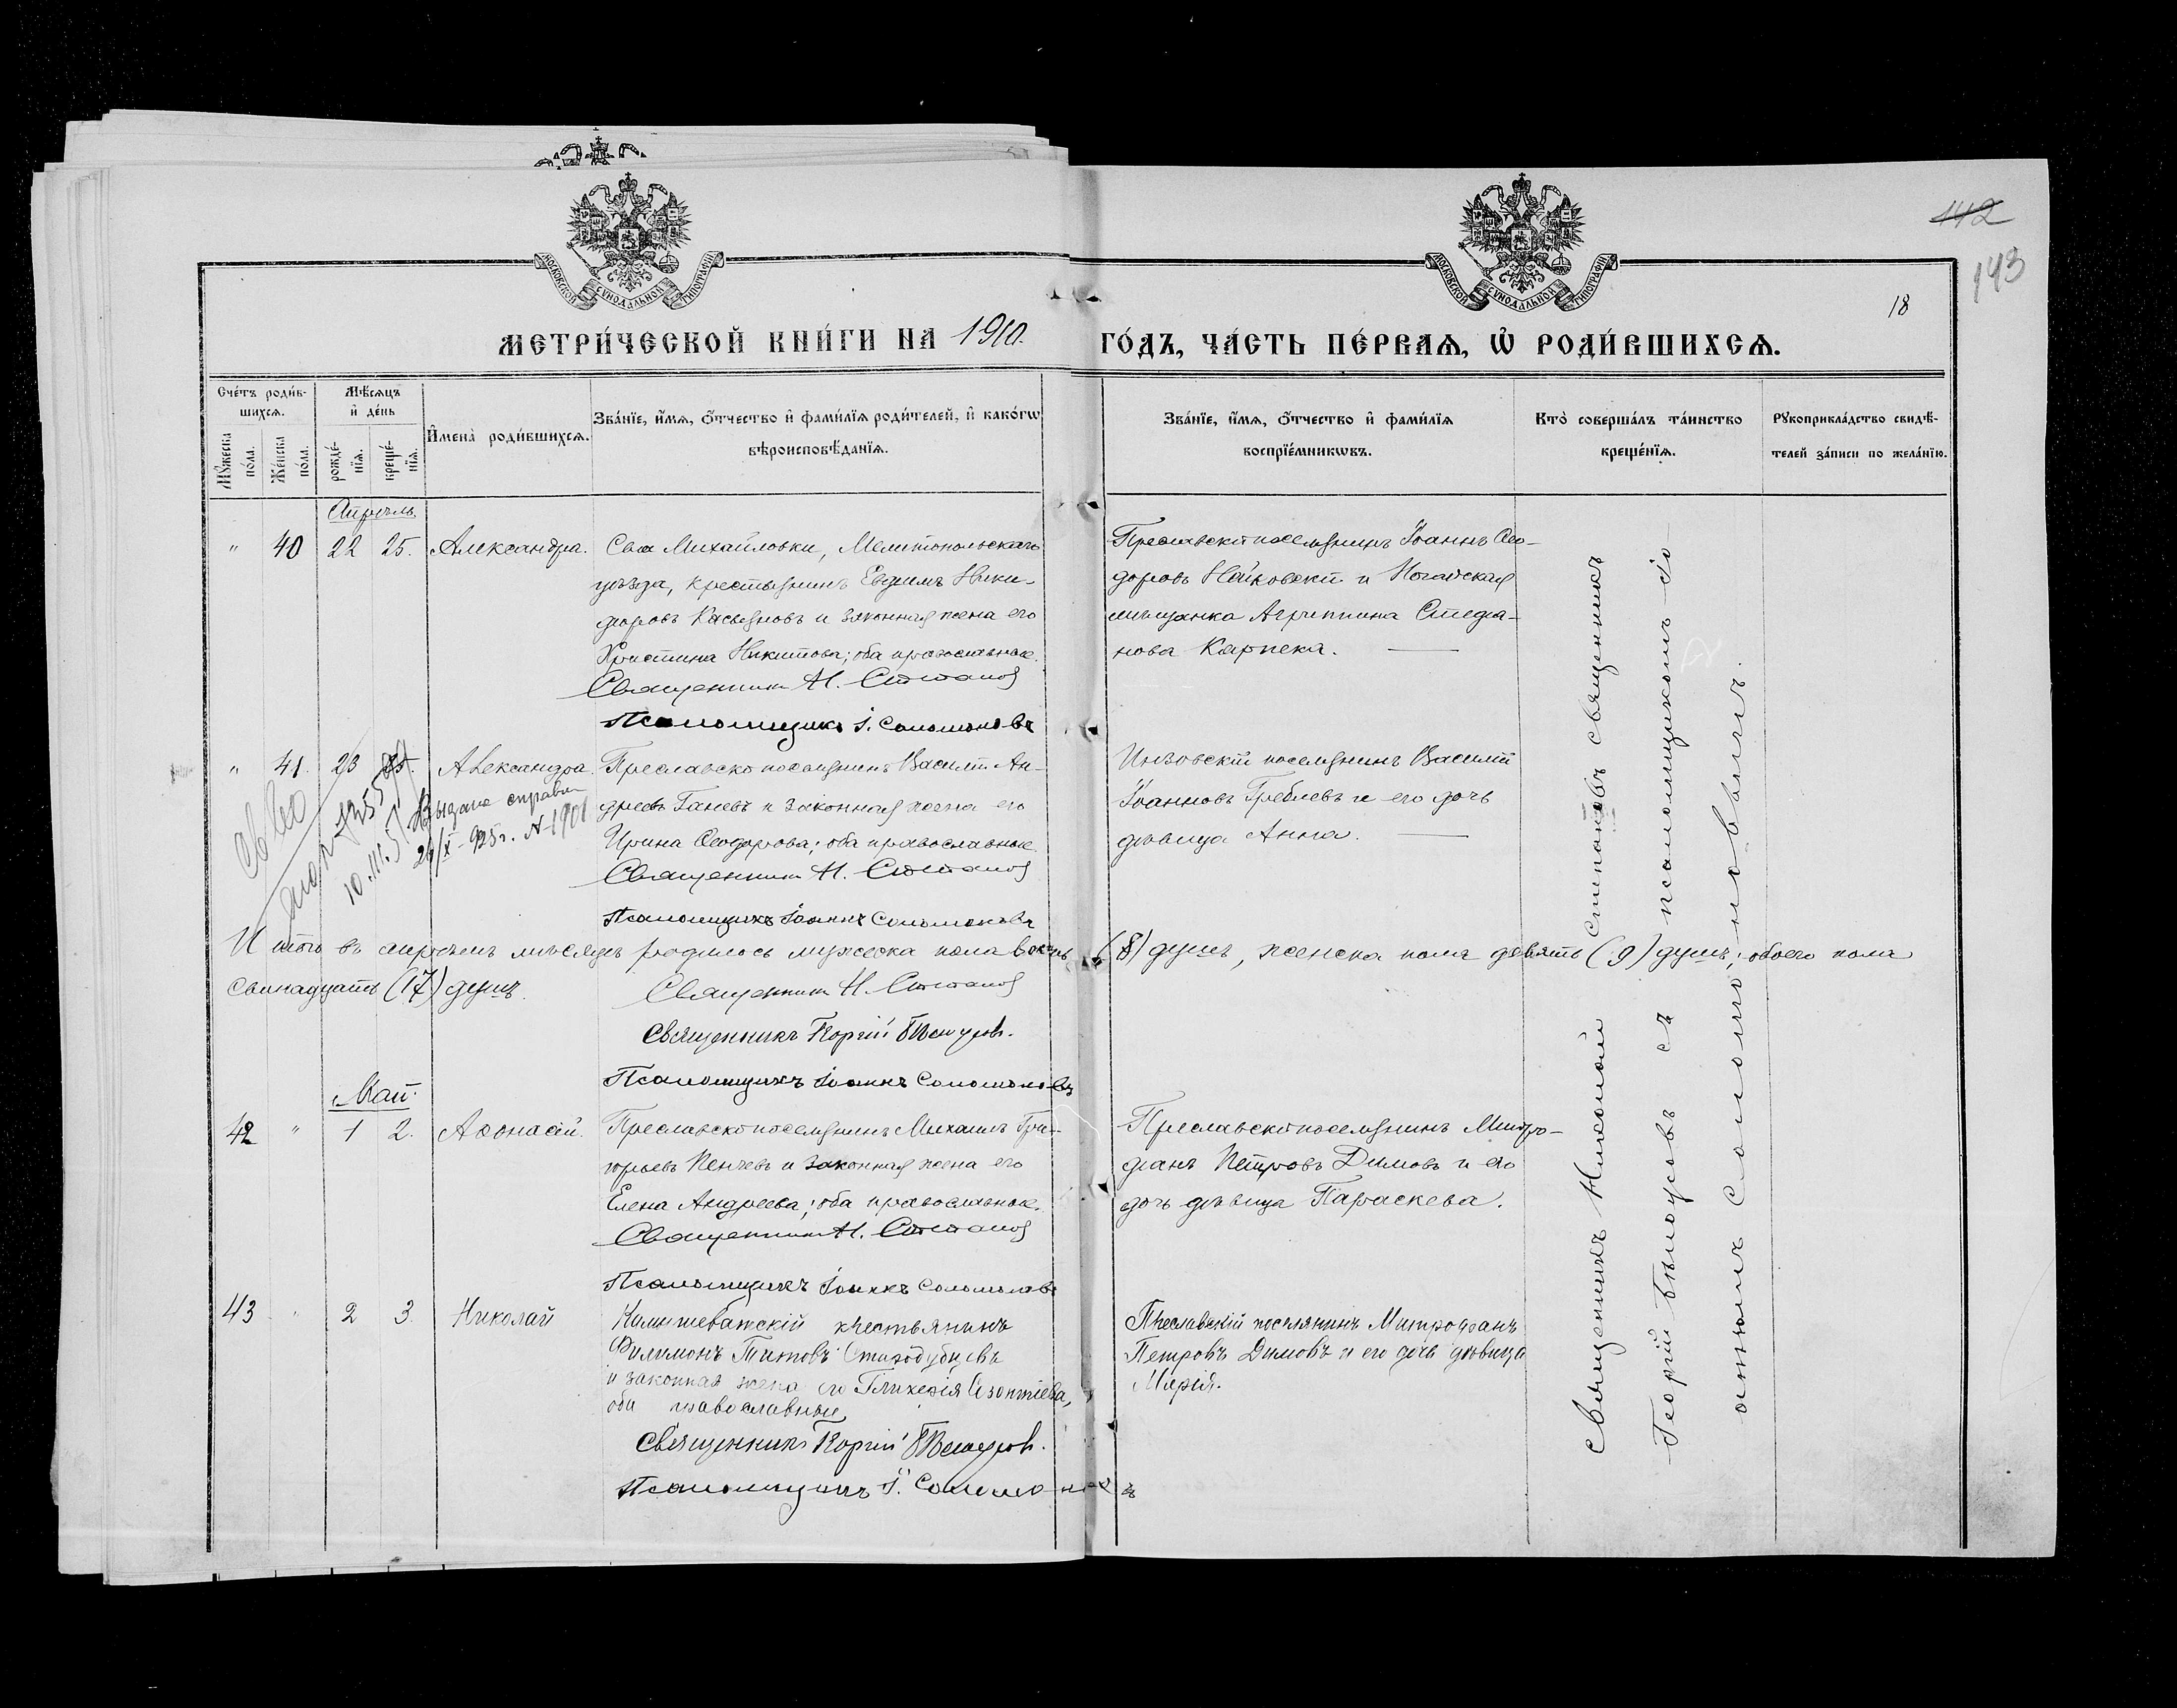 142
143
18
МОСКОВСКОЙ СѴНОДАЛЬНОЙ ТИПОГРАФІИ
МОСКОВСКОЙ СѴНОДАЛЬНОЙ ТИПОГРАФІИ
МЕТРИ́ЧЕСКОЙ КНИ́ГИ НА 1910.
ГО́ДЪ, ЧА́СТЬ ПЕ́РВАѦ, Ѡ҆ РОДИ́ВШИХСѦ.
Сче́тъ роди́в-
шихсѧ.
Мꙋ́жеска по́ла.
Же́нска по́ла.
Мѣ́сѧцъ
и҆ де́нь
рожде́-
нїѧ.
креще́-
нїѧ.
И҆мена̀ роди́вшихсѧ.
Зва́нїе, и҆́мѧ, ѻ҆́тчество и҆ фами́лїѧ роди́телей, и҆ како́гѡ
вѣроисповѣ́данїѧ.
Зва́нїе, и҆́мѧ, ѻ҆́тчество и҆ фами́лїѧ
воспрїе́мникѡвъ.
Кто̀ соверша́лъ та́инство
креще́нїѧ.
Рꙋкоприкла́дство свидѣ́-
телей за́писи по жела́нїю.
Апрѣль.
" 40 22 25. Александра.
Села Михайловки, Мелитопольскаго
уѣзда, крестьянинъ Евдимъ Ники-
форовъ Касьяновъ и законная жена его
Христина Никитова; оба православные.
Священникъ Н. Стояновъ
Псаломщикъ І. Соломоновъ
Преславскій поселянинъ Іоаннъ Ѳео-
доровъ Нейковскій и Ногайская
мѣщанка Агриппина Стефа-
нова Карпека.
" 41. 23 25. Александра.
Преславскій поселянинъ Василій Ан-
дреевъ Ганевъ и законная жена его
Ирина Ѳеодорова; оба православные.
Священникъ Н. Стояновъ
Псаломщикъ Іоаннъ Соломоновъ
Инзовскій поселянинъ Василій
Іоанновъ Греблевъ и его дочь
дѣвица Анна.
Выдана справка
26/X - 925 г. № 1901
Итого въ апрѣлѣ мѣсяцѣ родилось мужеска пола восемь (8) душъ, женска пола девять (9) душъ; обоего пола
семнадцать (17) душъ.
Священникъ Н. Стояновъ
Священникъ Георгій Бѣлоусовъ.
Псаломщикъ Іоаннъ Соломоновъ
Май.
42 " 1 2. Аѳонасій.
Преславскій поселянинъ Михаилъ Гри-
горьевъ Пенчевъ и законная жена его
Елена Андреева; оба православные.
Священникъ Н. Стояновъ
Псаломщикъ Іоаннъ Соломоновъ
Преславскій поселянинъ Митро-
фанъ Петровъ Димовъ и его
дочь дѣвица Параскева.
43 " 2 3. Николай
Камышеватскій крестьянинъ
Филимонъ Титовъ Стародубцевъ
и законная жена его Гликерія Изонтіева,
оба православные
Священникъ Георгій Бѣлоусовъ.
Псаломщикъ І. Соломоновъ
Преславскій поселянинъ Митрофанъ
Петровъ Димовъ и его дочь дѣвица
Марія.
Священникъ Николай Стояновъ священникъ
Георгій Бѣлоусовъ съ псаломщикомъ Іо
анномъ Соломоновымъ.